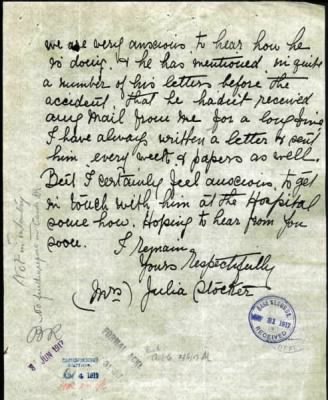 we are very anxious, to hear how he
is doing, & he has mentioned in quite
a number of his letters before the
accident, that he hadn't received
any mail from me for a long time
I have always written a letter & sent
him every week & papers as well.
But I certainly feel anxious, to get
in touch with him at the Hospital
some how. Hoping to hear from you
soon.
I remain
Yours Respectfully
(Mrs) Julia Stocker
BR
JUN 1917
FORMAL ACKN
BASE RECORDS
1917
RECEIVED